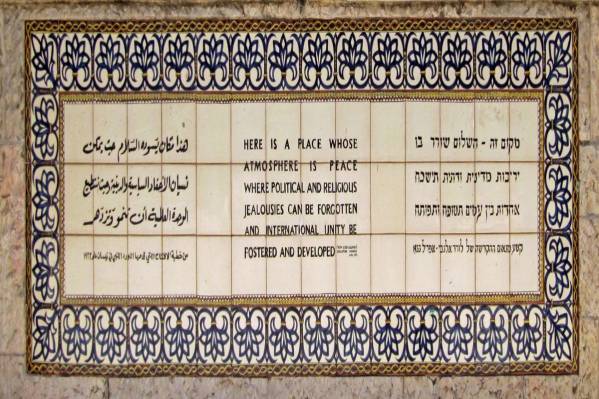 هذا مكان يسوده السلام حيث يمكن
نسيان الأحقاد السياسية والدينية وحيث تستطيع
الوحدة العالمية أن تنمو وتزدهر
HERE IS A PLACE WHOSE
ATMOSPHERE IS PEACE
WHERE POLITICAL AND RELIGIOUS
JEALOUSIES CAN BE FORGOTTEN
AND INTERNATIONAL UNITY BE
FOSTERED AND DEVELOPED
מקום זה - השלום שורר בו
יריבות מדינית ודתית תישכח
אחדות בין עמים תטופח ותפותח
קטע מנאום ההקדשה של לורד אלנבי - אפריל 1933